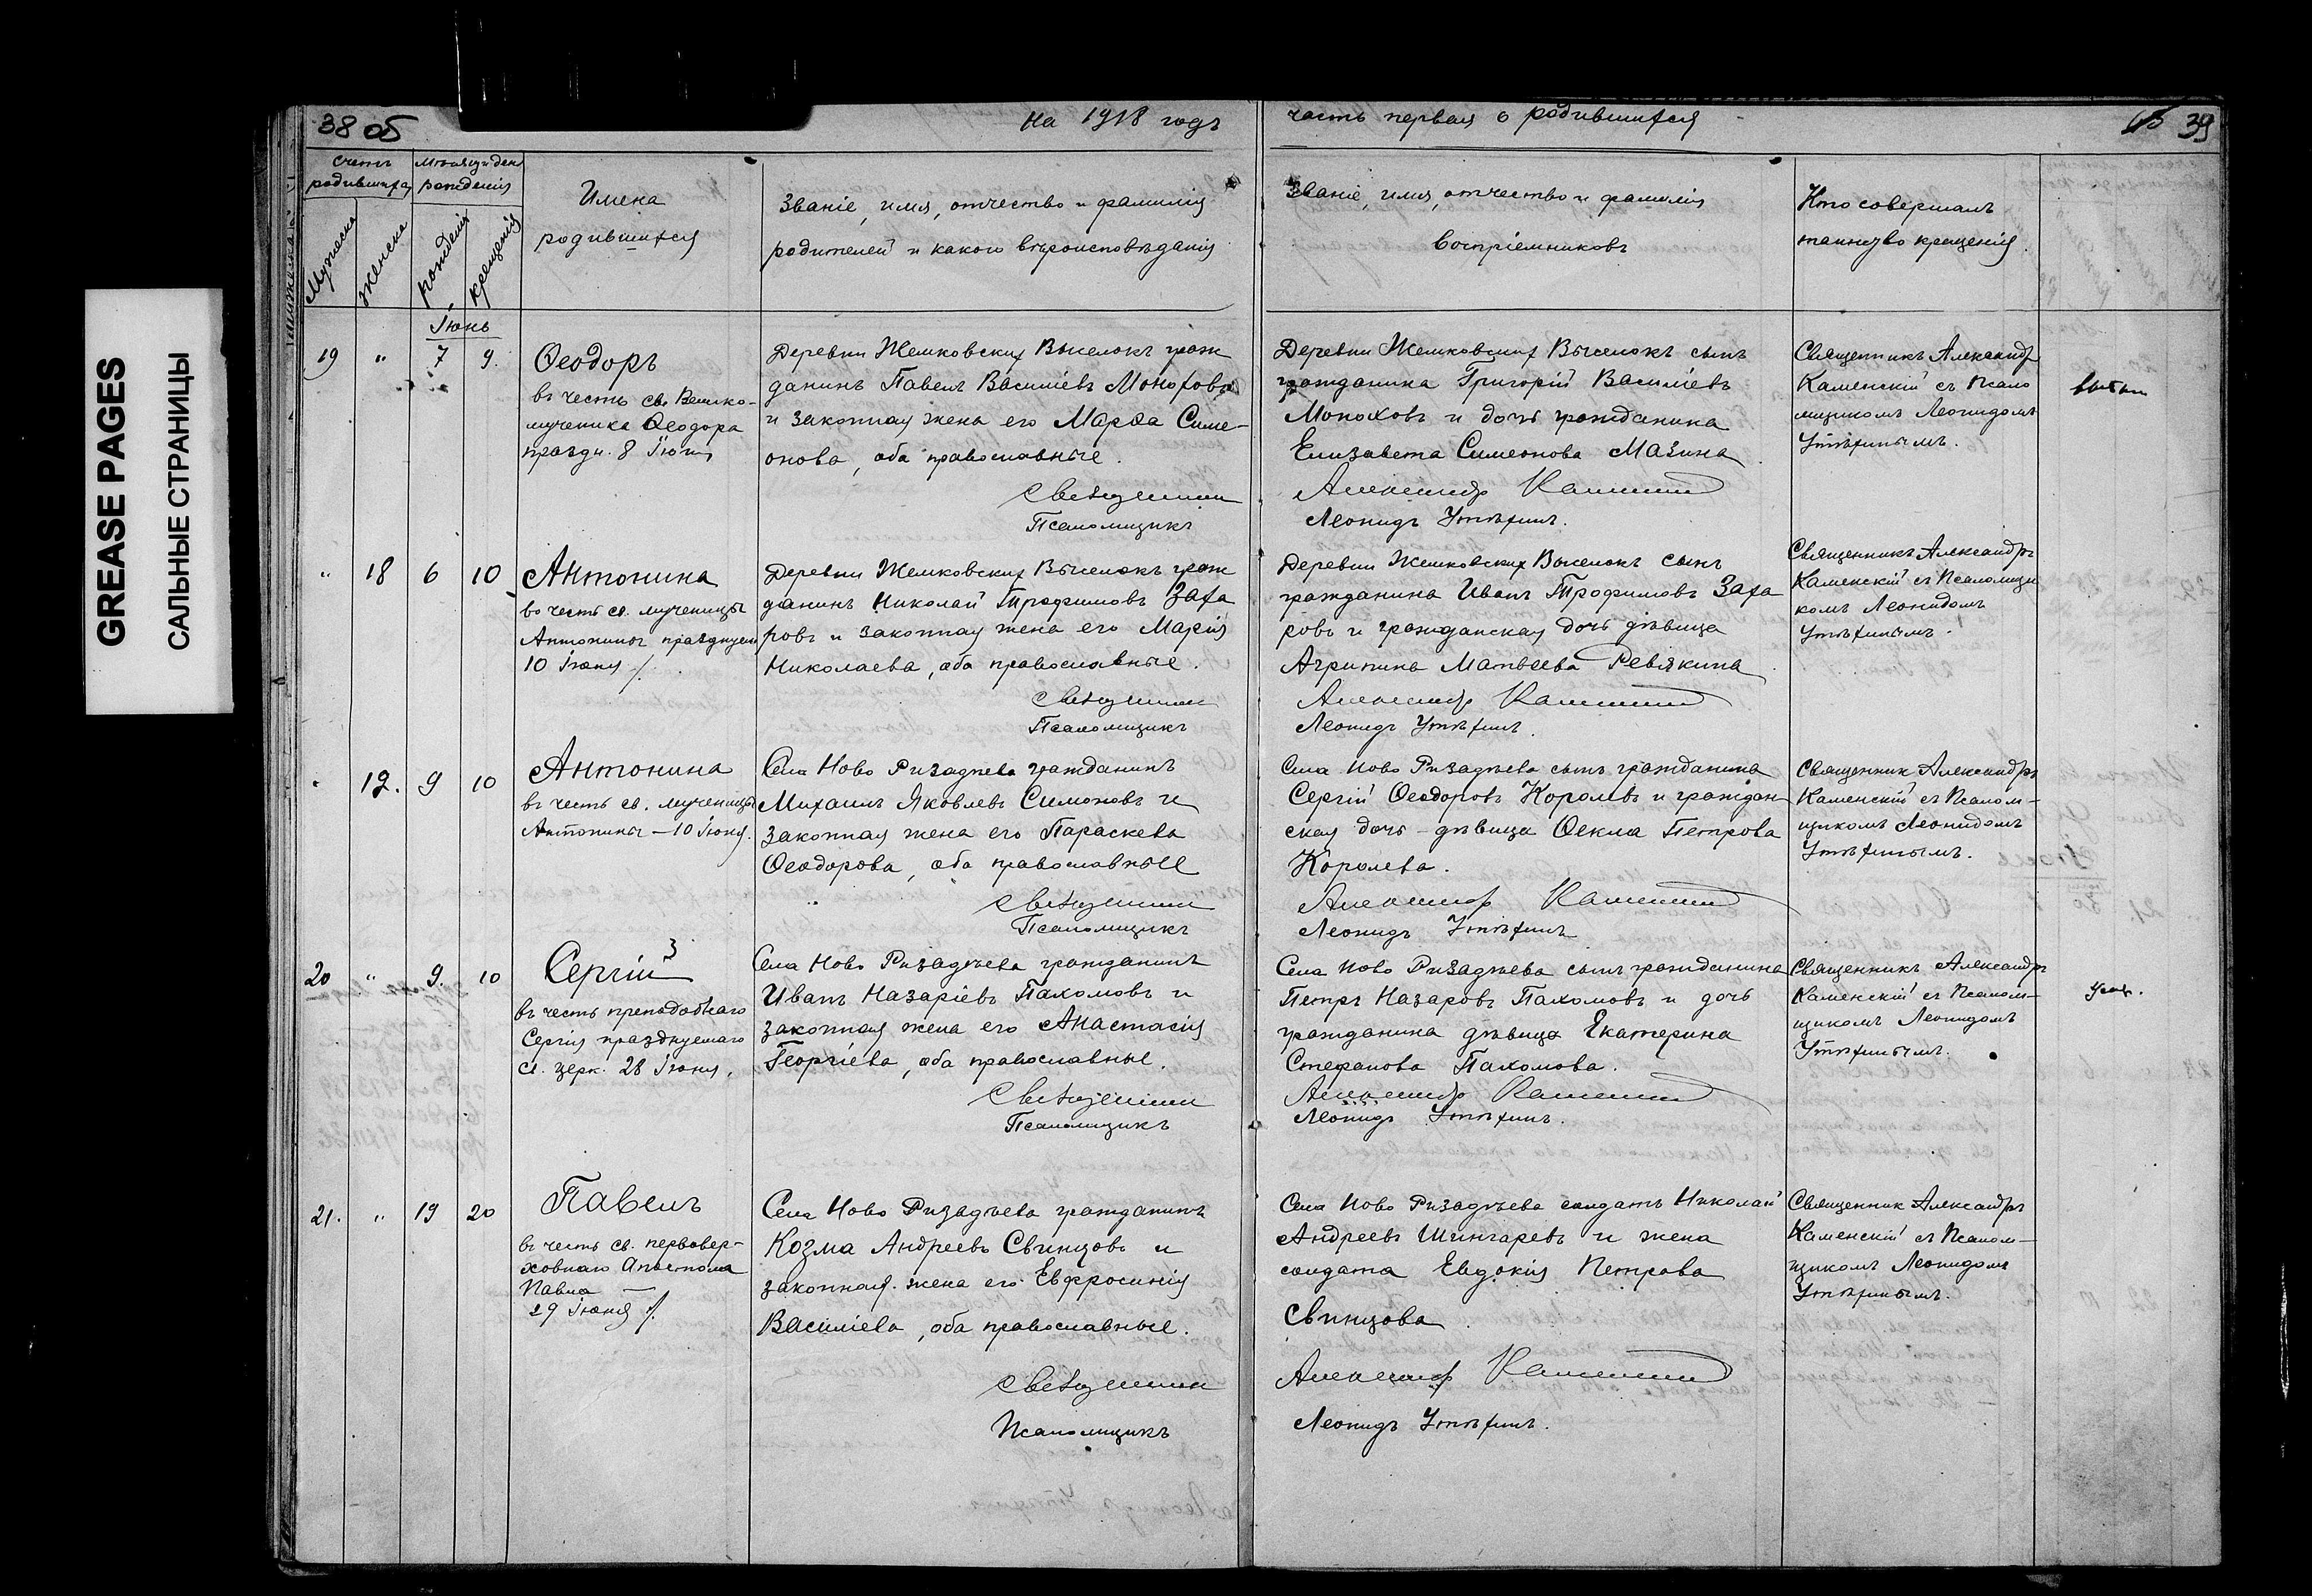 GREASE PAGES
САЛЬНЫЕ СТРАНИЦЫ
38 об
На 1918 годъ
Счетъ родившихся
Мѣсяцъ и день рожденія
Мужеска
Женска
рожденія
крещенія
Имена
родившихся
Званіе, имя, отчество и фамилія
родителей и какого вѣроисповѣданія
Іюнь
19 " 7 9.
Ѳеодоръ
въ честь св. Велико-
мученика Ѳеодора
праздн. 8 Іюня
Деревни Жемковскихъ Выселокъ граж
данинъ Павелъ Василіевъ Монохова
и законная жена его Марѳа Симе-
онова, оба православные.
Священникъ
Псаломщикъ
" 18 6 10
Антонина
въ честь св. мученицы
Антонины празднуем
10 Іюня /.
Деревни Жемковскихъ Выселокъ граж
данинъ Николай Трофимовъ Заха
ровъ и законная жена его Марія
Николаева, оба православные.
Священникъ
Псаломщикъ
" 19. 9 10
Антонина
въ честь св. мученицы
Антонины – 10 Іюня.
Села Ново Ризадѣева гражданинъ
Михаилъ Яковлевъ Симоновъ и
законная жена его Параскева
Ѳеодорова, оба православные
Священникъ
Псаломщикъ
20 " 9. 10
3
Сергій
въ честь преподобнаго
Сергія празднуемаго
св. церк. 28 Іюня.
Села Ново Ризадѣева гражданинъ
Иванъ Назаріевъ Пахомовъ и
законная жена его Анастасія
Георгіева, оба православные.
Священникъ
Псаломщикъ
21. " 19 20
Павелъ
въ честь св. первовер-
ховнаго Апостола
Павла –
29 іюня /.
Села Ново Ризадѣева гражданинъ
Козма Андреевъ Свинцовъ и
законная жена его Евфросинія
Василіева, оба православные.
Священникъ
Псаломщикъ
часть первая о родившихся
39
Званіе, имя, отчество и фамилія
Воспріемниковъ
Кто совершалъ
таинство крещенія.
Деревни Жемковскихъ Выселокъ сынъ
гражданина Григорій Василіевъ
Моноховъ и дочь гражданина
Елизавета Симеонова Мазина
Александръ Каменскій
Леонидъ Утѣхинъ.
Священникъ Александръ
Каменскій съ Псало
мщикомъ Леонидомъ
Утѣхинымъ.
Деревни Жемковскихъ Выселокъ сынъ
гражданина Иванъ Трофимовъ Заха
ровъ и гражданская дочь дѣвица
Агрипина Матвеева Ревякина
Александръ Каменскій
Леонидъ Утѣхинъ.
Священникъ Александръ
Каменскій съ Псаломщи
комъ Леонидомъ
Утѣхинымъ.
Села Ново Ризадѣева сынъ гражданина
Сергій Ѳеодоровъ Королевъ и граждан
ская дочь – дѣвица Ѳекла Петрова
Королева.
Александръ Каменскій
Леонидъ Утѣхинъ
Священник Александръ
Каменскій съ Псалом-
щикомъ Леонидомъ
Утѣхинымъ.
Села Ново Ризадѣева сынъ гражданина
Петръ Назаровъ Пахомовъ и дочь
гражданина дѣвица Екатерина
Стефанова Пахомова.
Александръ Каменскій
Леонидъ Утѣхинъ.
Священникъ Александръ
Каменскій съ Псалом-
щикомъ Леонидомъ
Утѣхинымъ.
Села Ново Ризадѣева солдатъ Николай
Андреевъ Шингаревъ и жена
солдата Евдокія Петрова
Свинцова
Александръ Каменскій
Леонидъ Утѣхинъ.
Священник Александръ
Каменскій съ Псалом-
щикомъ Леонидомъ
Утѣхинымъ.